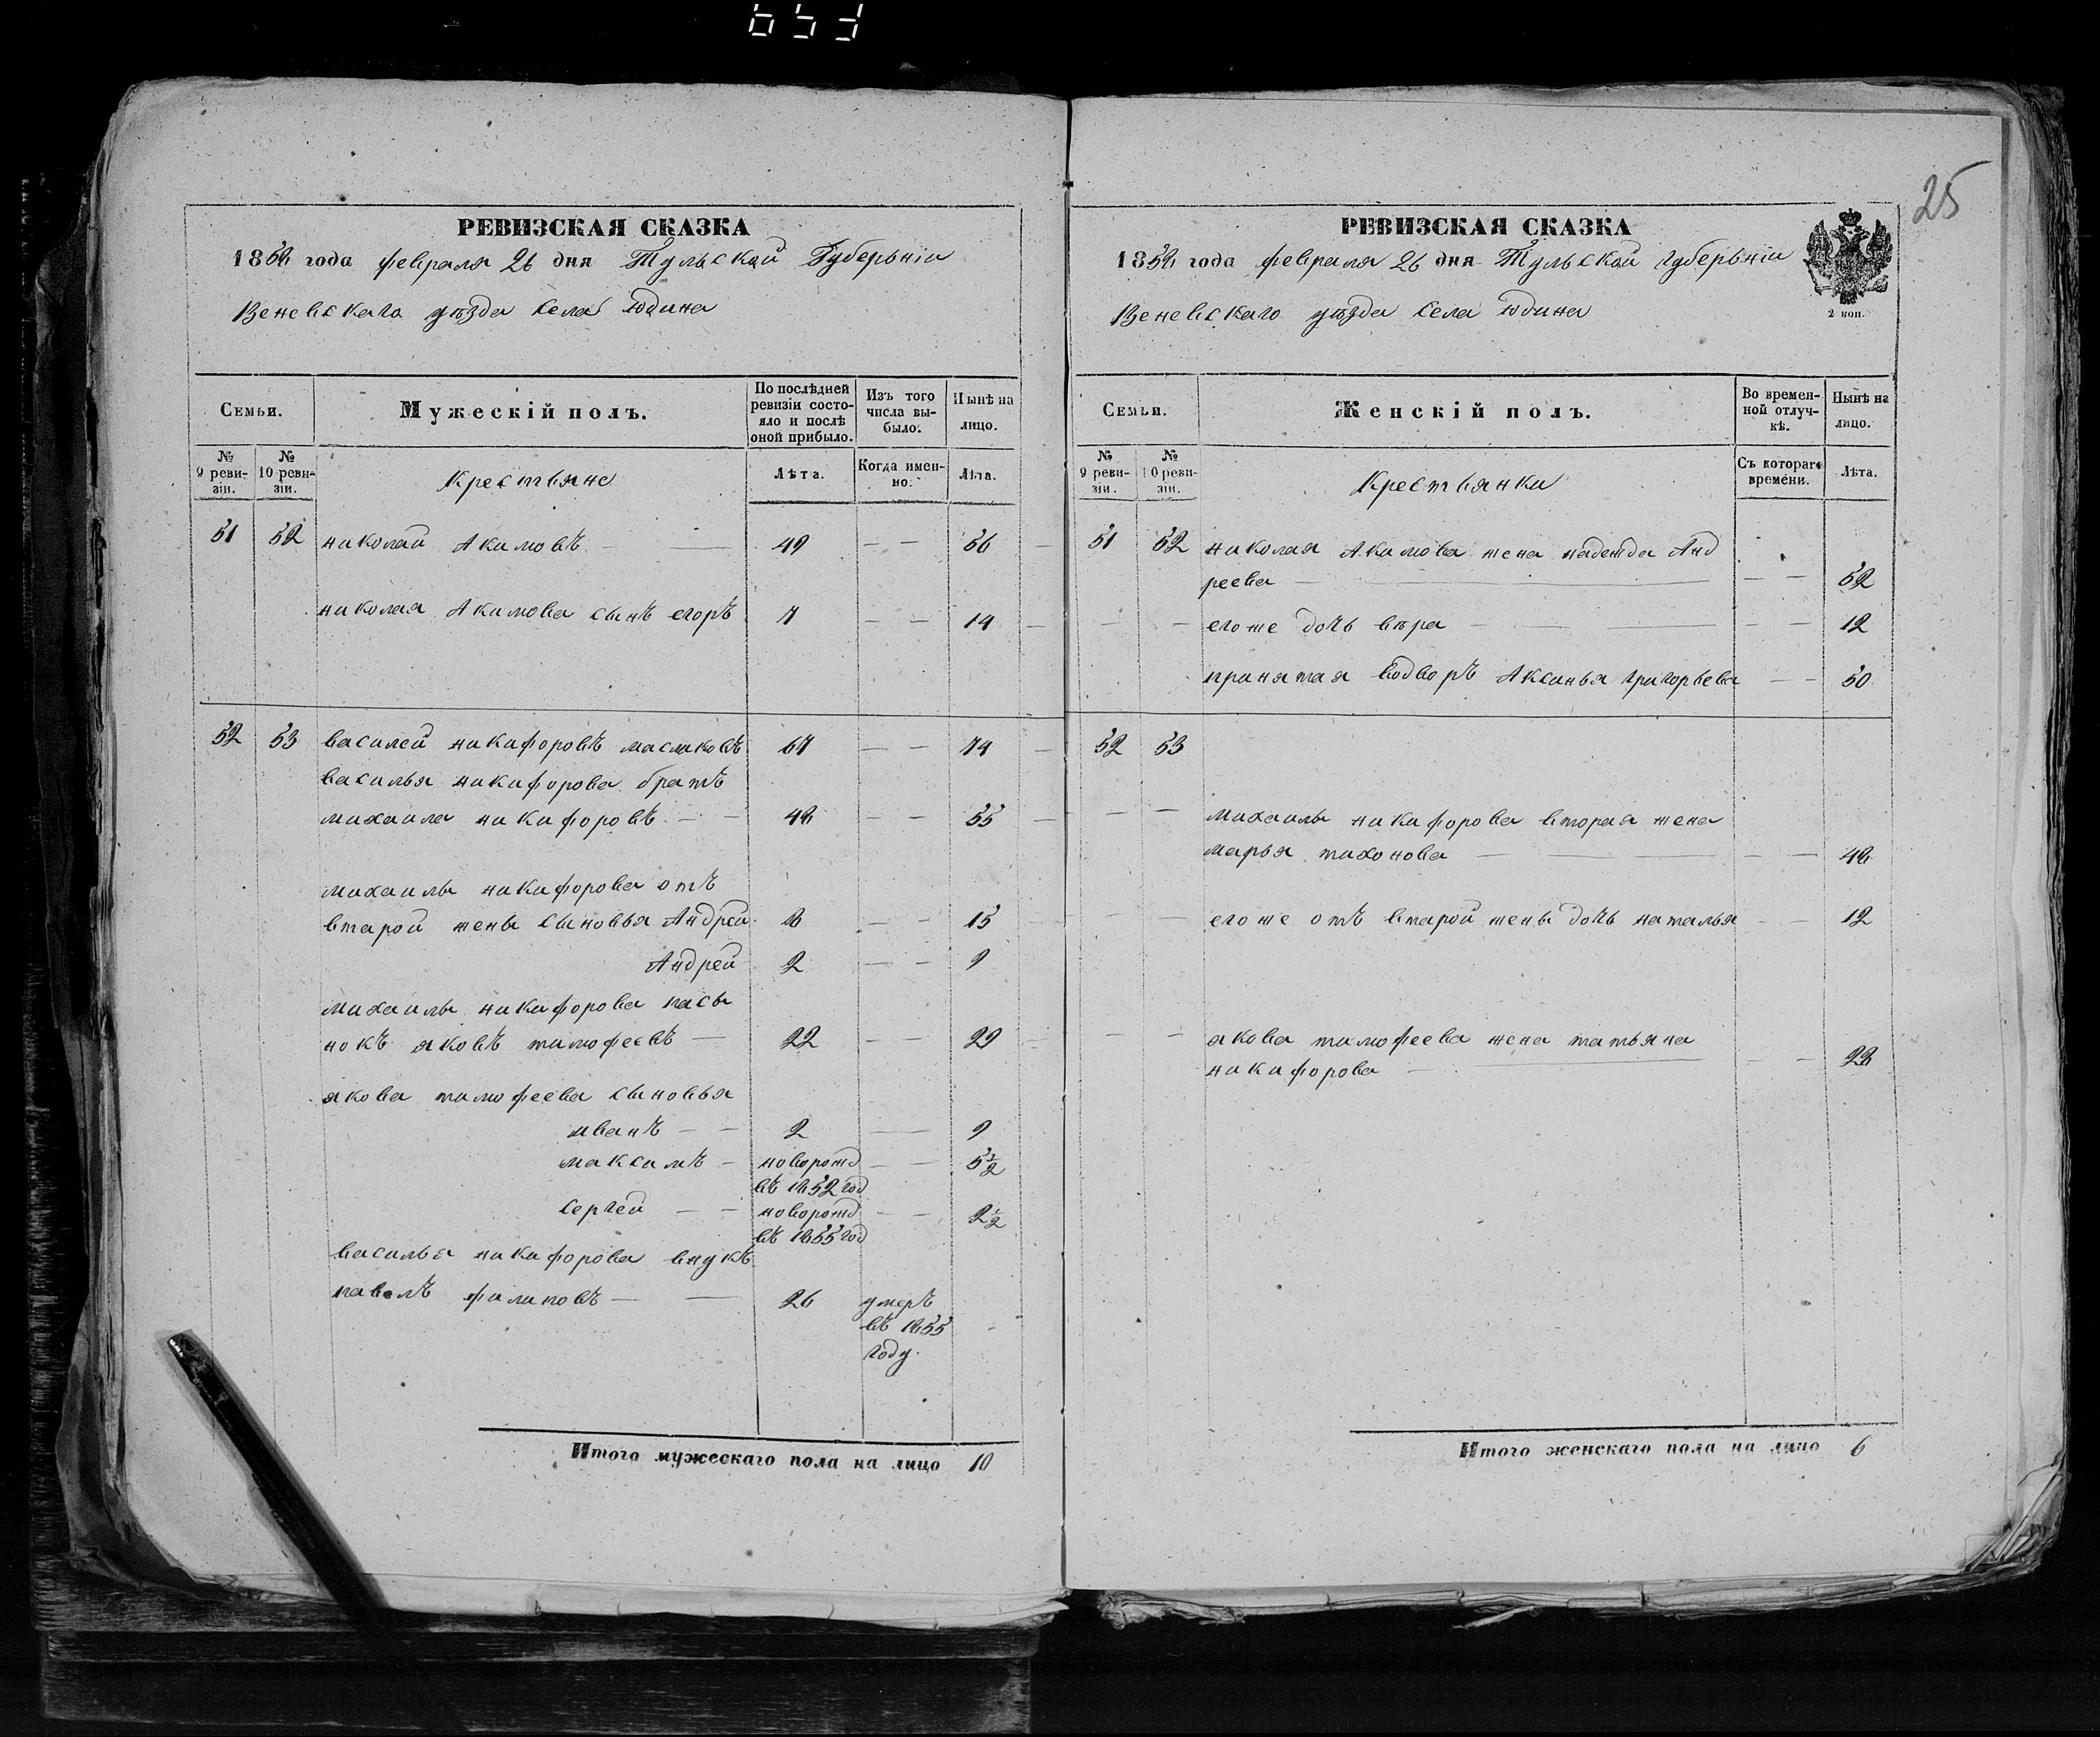 653
РЕВИЗСКАЯ СКАЗКА
1858 года февраля 26 дня Тульской Губерьніи
Веневскаго уѣзда села юдина
Семьи.
Мужескій полъ.
По послѣдней ревизіи состояло и послѣ оной прибыло.
Изъ того числа выбыло.
Нынѣ на лицо.
№ 9 ревизіи.
№ 10 ревизіи.
Крестьяне
Лѣта.
Когда именно.
Лѣта.
51 52 николай Акимовъ — — 49 — — 56
николая Акимова сынъ егоръ 7 — — 14
52 53 василей никифоровъ масликовъ 67 — — 74
василья никифорова братъ
михаила никифоровъ — — 48 — — 55
михаилы никифорова отъ
второй жены сыновья Андрей 8 — — 15
Андрей 2 — — 9
михаилы никифорова пасы
нокъ яковъ тимофеевъ — 22 — — 29
якова тимофеева сыновья
иванъ — — 2 — 9
максимъ — новорожд — — 5½
въ 1852 год
сергей — — новорожд — — 2½
въ 1855 год
василья никифорова внукъ
павелъ филиповъ — — 26 умеръ
въ 1855
году.
Итого мужескаго пола на лицо 10
25
РЕВИЗСКАЯ СКАЗКА
1858 года февраля 26 дня Тульской губерьніи
Веневскаго уѣзда села юдина
2 коп.
Семьи.
Женскій полъ.
Во временной отлучкѣ.
Нынѣ на лицо.
№ 9 ревизіи.
№ 10 ревизіи.
Крестьянки
Съ котораго времени.
Лѣта.
51 52 николая Акимова жена надежда Анд
реева — — — — 52
его же дочь вѣра — — — — 12
принятая водворъ Аксинья григорьева — — 50
52 53
михаилы никифорова вторая жена
марья тихонова — — — — 48
его же отъ второй жены дочь наталья — — 12
якова тимофеева жена татьяна
никифорова — — — — 28
Итого женскаго пола на лицо 6